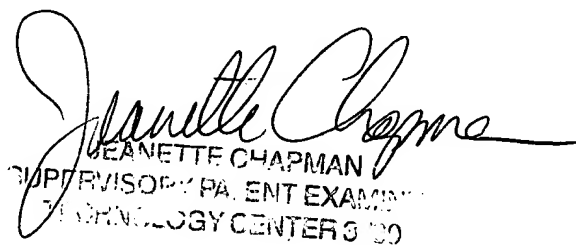 Jeanette Chapman
JEANETTE CHAPMAN
SUPERVISORY PATENT EXAMINER
TECHNOLOGY CENTER